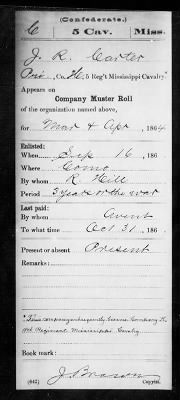 (Confederate.)
C 5 Cav. Miss.
J. R. Carter
Pri, Co. H, 5 Reg't Mississippi Cavalry.*
Appears on
Company Muster Roll
of the organization named above,
for Mar & Apr, 1864.
Enlisted:
When Sep 16, 186
Where Como
By whom R. Hill
Period 3 years or the war
Last paid:
By whom Avent
To what time Oct 31, 186
Present or absent Present
Remarks:
*This company subsequently became Company
Regiment Mississippi Cavalry
Book mark:
(642) Copyist.